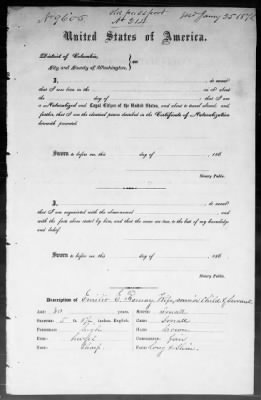 No 9605 Old passport No 214 Jany 25 187
United States of America.
District of Columbia,
City and County of Washington, } ss
I, do swear
that I was born in the in or about
the day of ; that I am
a Naturalized and Loyal Citizen of the United States, and about to travel abroad; and
further, that I am the identical person described in the Certificate of Naturalization
herewith presented.
Sworn to before me this day of 186
Notary Public.
I, do swear
that I am acquainted with the above-named and
with the facts above stated by him, and that the same are true to the best of my knowledge
and belief.
Sworn to before me this day of , 186
Notary Public.
Description of Wife, minor Child & Servant
AGE: 30 years. MOUTH: small
STATURE: 5 feet inches, English. CHIN: Small
FOREHEAD: high HAIR: brown
EYES: hazel COMPLEXION: fair
NOSE: Sharp FACE: long & thin